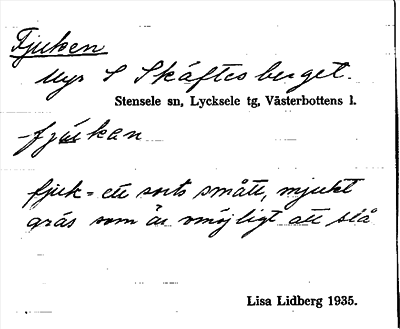 Fjuken
Myr S Skáftesberget.
Stensele sn, Lycksele tg, Västerbottens l.
-fjúkan
fjuk = ett sorts smått, mjukt
gräs som är omöjligt att slå
Lisa Lidberg 1935.